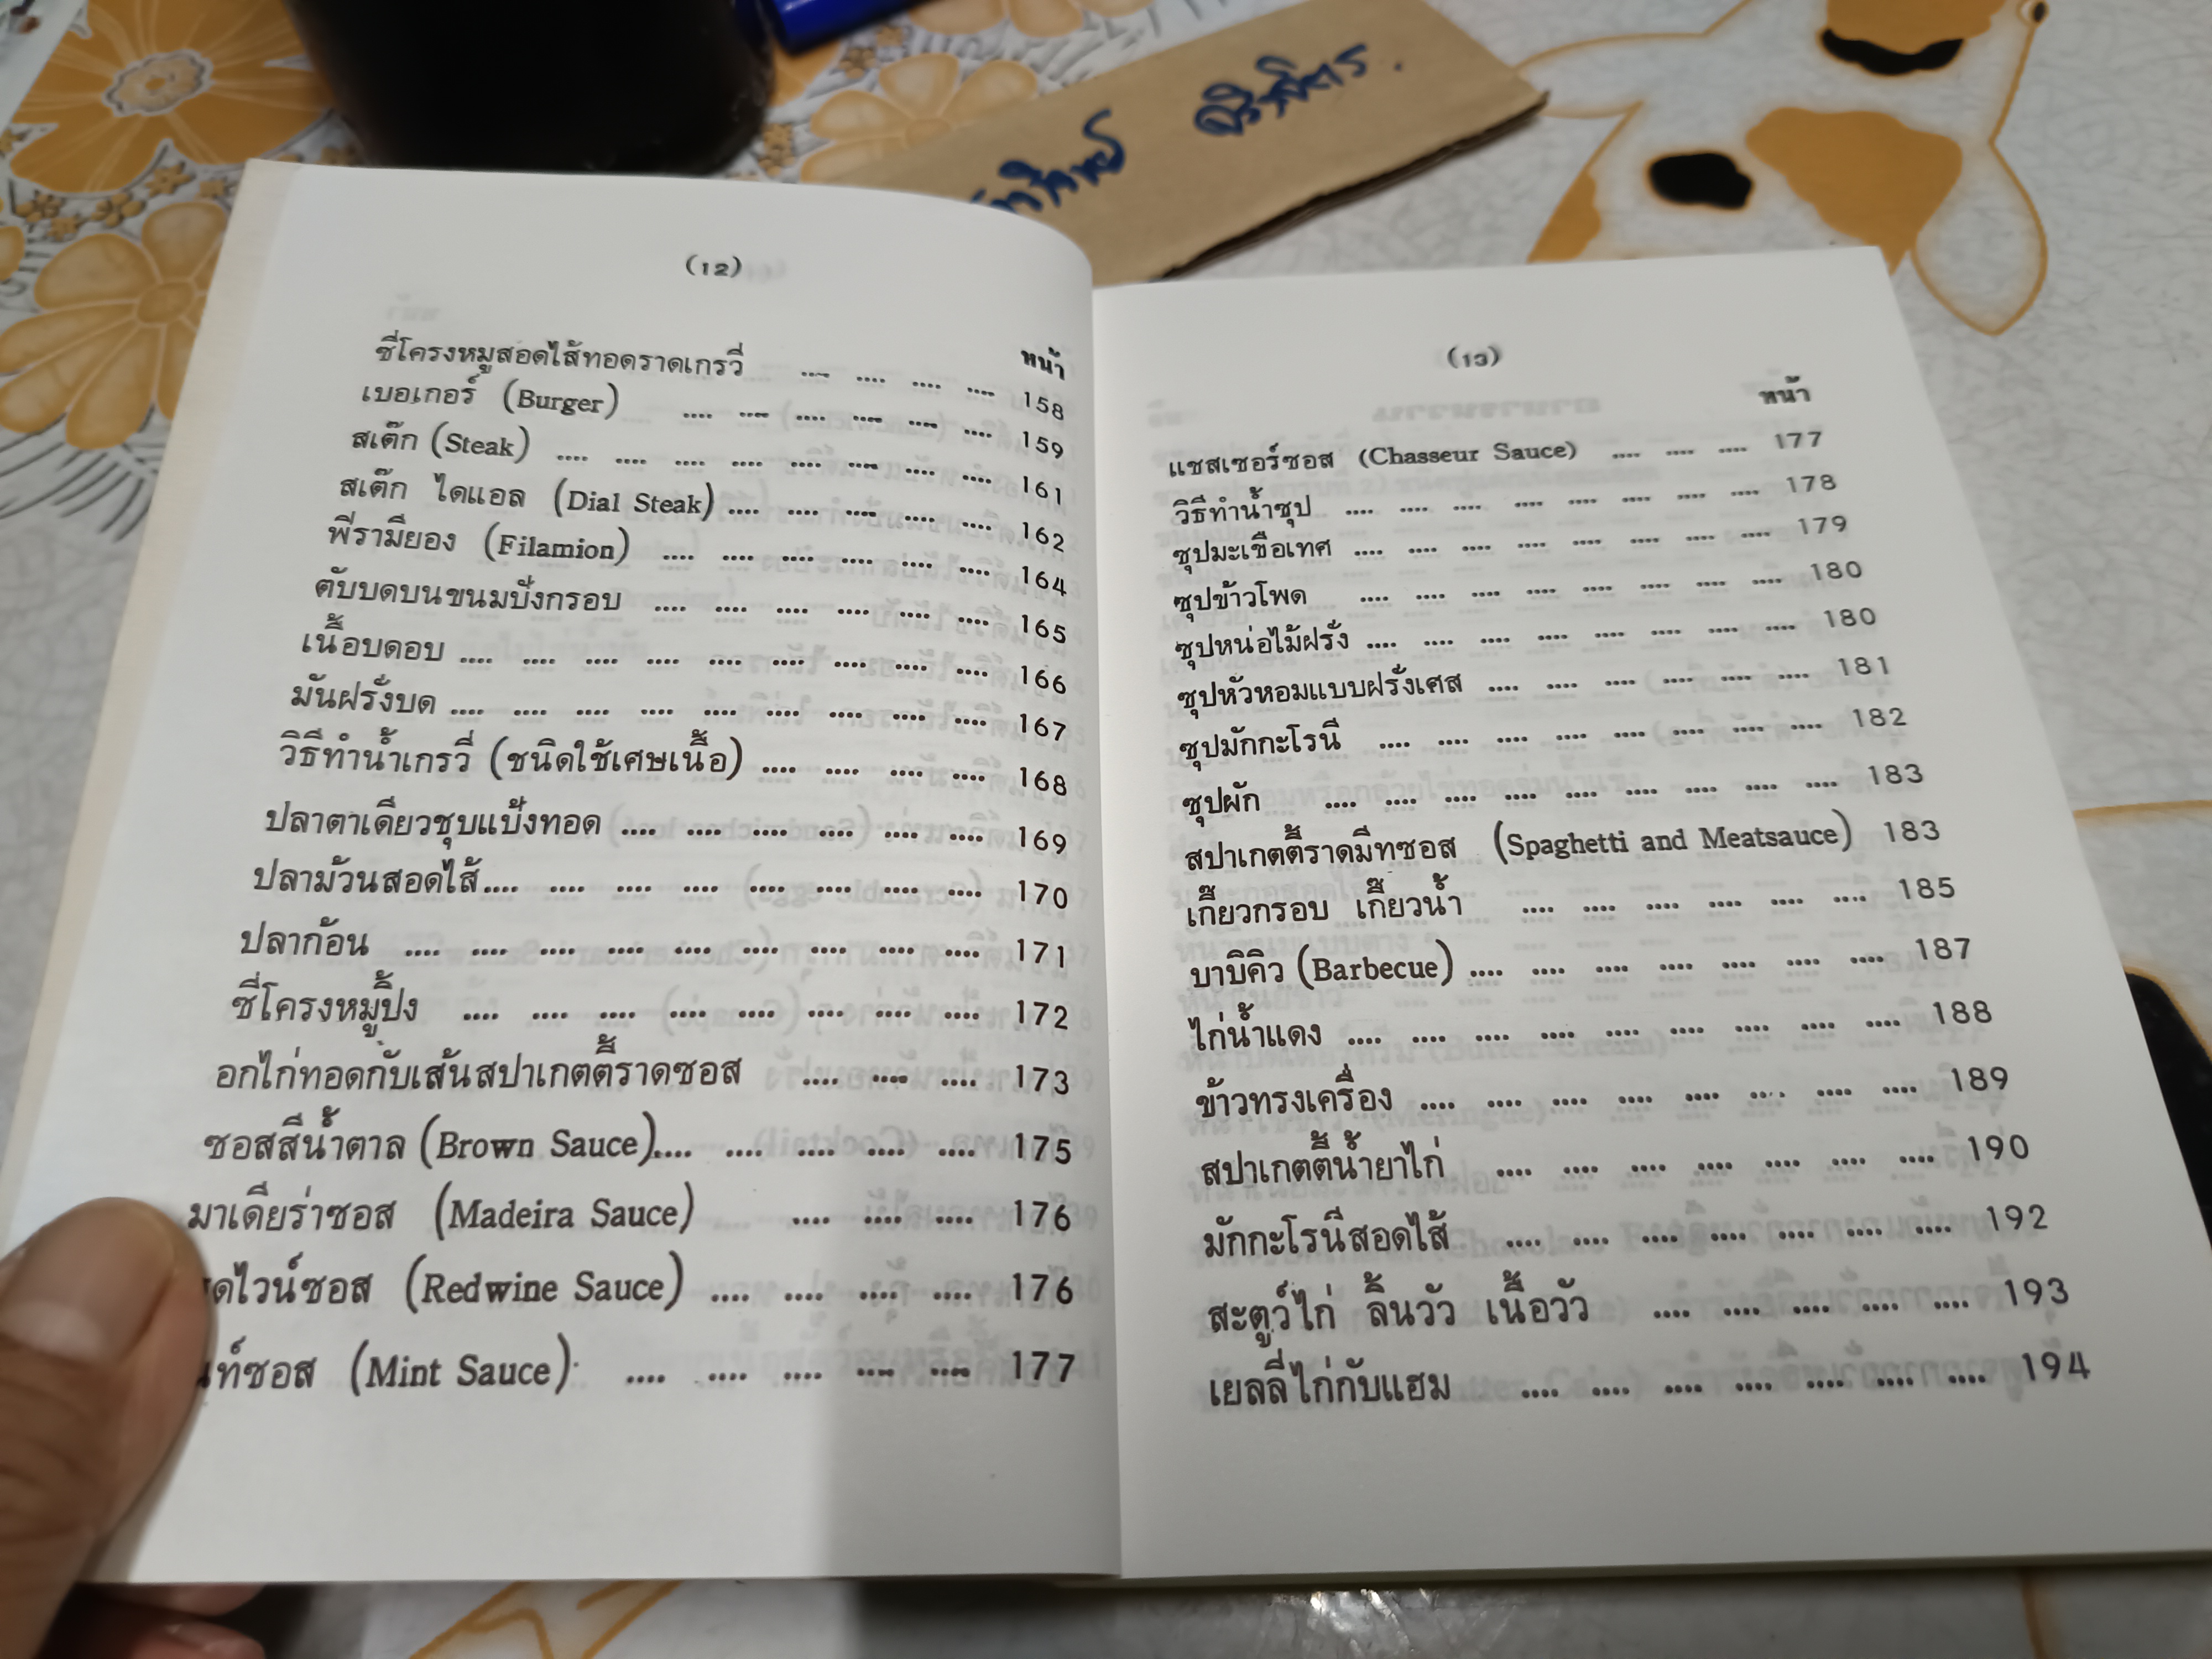 จิรพัตร.
(12)
หน้า
ซี่โครงหมูสอดไส้ทอดราดเกรวี่ .... .... .... .... 158
เบอเกอร์ (Burger) .... .... .... .... .... .... 159
สเต๊ก (Steak) .... .... .... .... .... .... .... .... 161
สเต๊ก ไดแอล (Dial Steak) .... .... .... .... .... 162
พีรามียอง (Filamion) .... .... .... .... .... .... 164
ตับบดบนขนมปังกรอบ .... .... .... .... .... .... 165
เนื้อบดอบ .... .... .... .... .... .... .... .... .... 166
มันฝรั่งบด .... .... .... .... .... .... .... .... .... 167
วิธีทำน้ำเกรวี่ (ชนิดใช้เศษเนื้อ) .... .... .... .... 168
ปลาตาเดียวชุบแป้งทอด .... .... .... .... .... .... 169
ปลาม้วนสอดไส้.... .... .... .... .... .... .... .... 170
ปลาก้อน .... .... .... .... .... .... .... .... .... 171
ซี่โครงหมูปิ้ง .... .... .... .... .... .... .... .... 172
อกไก่ทอดกับเส้นสปาเกตตี้ราดซอส .... .... .... 173
ซอสสีน้ำตาล (Brown Sauce).... .... .... .... .... 175
มาเดียร่าซอส (Madeira Sauce) .... .... .... 176
ดไวน์ซอส (Redwine Sauce) .... .... .... .... 176
ท์ซอส (Mint Sauce) .... .... .... .... .... 177
(13)
หน้า
แชสเซอร์ซอส (Chasseur Sauce) .... .... .... 177
วิธีทำน้ำซุป .... .... .... .... .... .... .... .... 178
ซุปมะเขือเทศ .... .... .... .... .... .... .... .... 179
ซุปข้าวโพด .... .... .... .... .... .... .... .... 180
ซุปหน่อไม้ฝรั่ง .... .... .... .... .... .... .... .... 180
ซุปหัวหอมแบบฝรั่งเศส .... .... .... .... .... .... 181
ซุปมักกะโรนี .... .... .... .... .... .... .... .... 182
ซุปผัก .... .... .... .... .... .... .... .... .... 183
สปาเกตตี้ราดมีทซอส (Spaghetti and Meatsauce) 183
เกี๊ยวกรอบ เกี๊ยวน้ำ .... .... .... .... .... .... 185
บาบิคิว (Barbecue) .... .... .... .... .... .... .... 187
ไก่น้ำแดง .... .... .... .... .... .... .... .... .... 188
ข้าวทรงเครื่อง .... .... .... .... .... .... .... .... 189
สปาเกตตี้น้ำยาไก่ .... .... .... .... .... .... .... 190
มักกะโรนีสอดไส้ .... .... .... .... .... .... .... 192
สะตูว์ไก่ ลิ้นวัว เนื้อวัว .... .... .... .... .... 193
เยลลี่ไก่กับแฮม .... .... .... .... .... .... .... 194